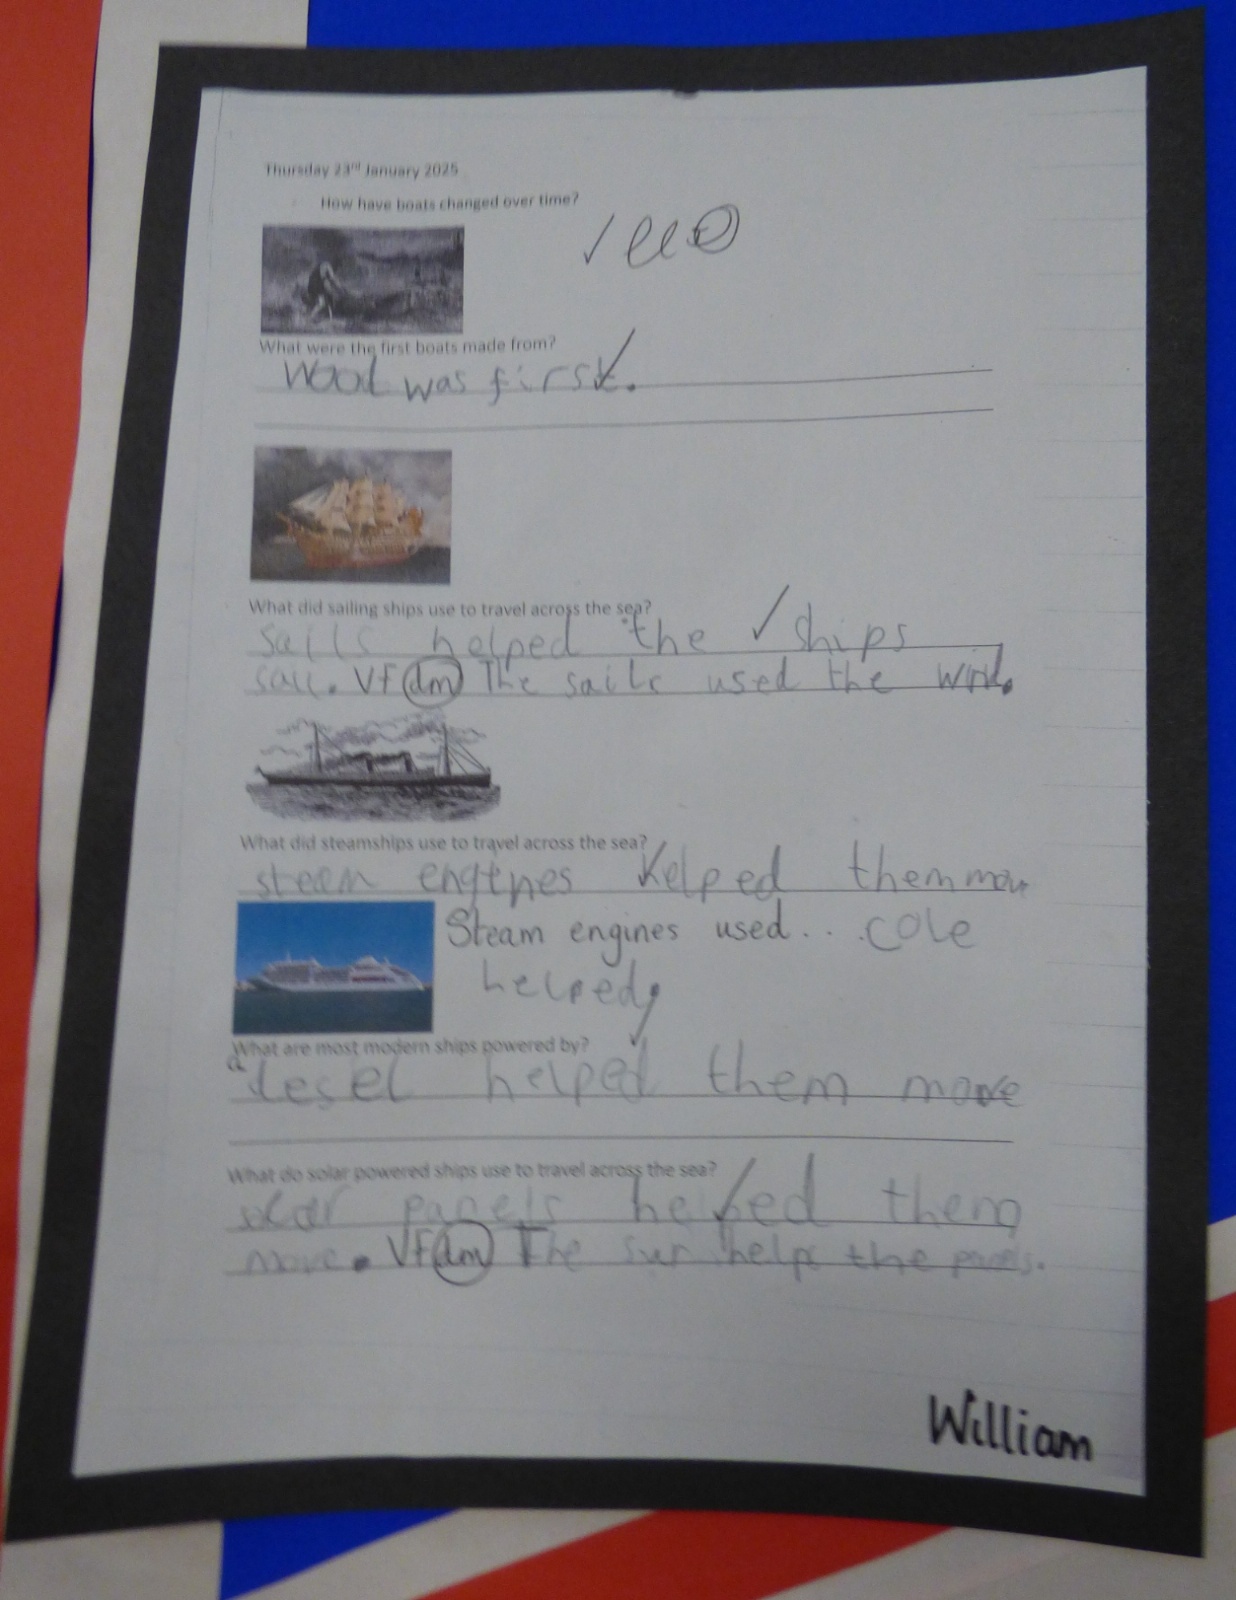 Thursday 23rd January 2025
How have boats changed over time?
What were the first boats made from?
Wood was first.
What did sailing ships use to travel across the sea?
Sails helped the ships
sail. VF dm The sails used the wind.
What did steamships use to travel across the sea?
steam engines helped them move
Steam engines used... cole
helped
What are most modern ships powered by?
desel helped them move
What do solar powered ships use to travel across the sea?
solar panels helped them
move. VF dm The sun helps the panels.
William